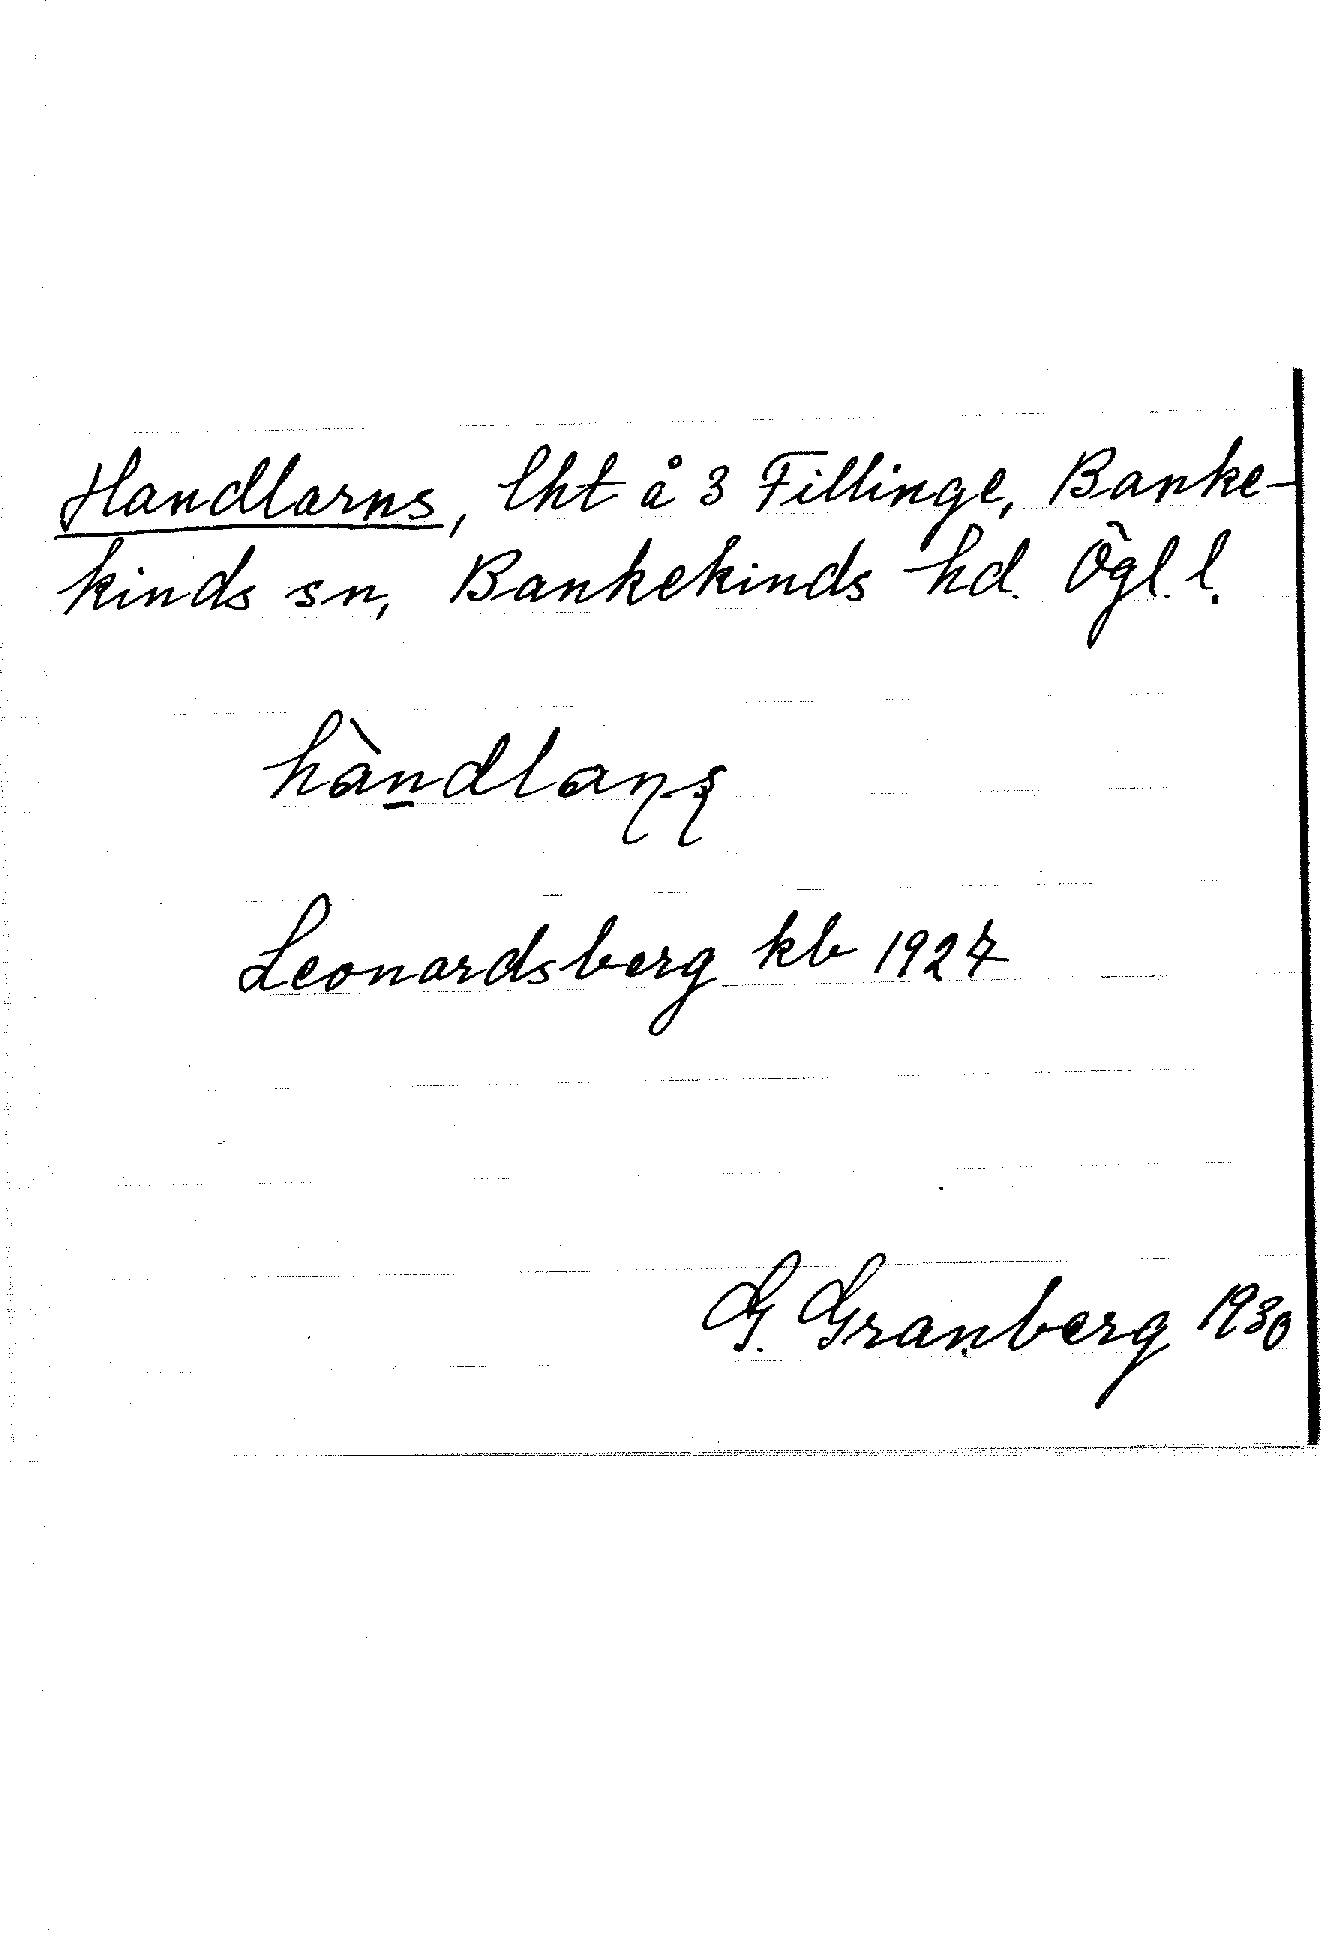 Handlarns, lht å 3 Fillinge, Banke-
kinds sn, Bankekinds hd. Ögl. l.
hàn̲dlaɳʂ
Leonardsberg kb 1927
G. Granberg 1930